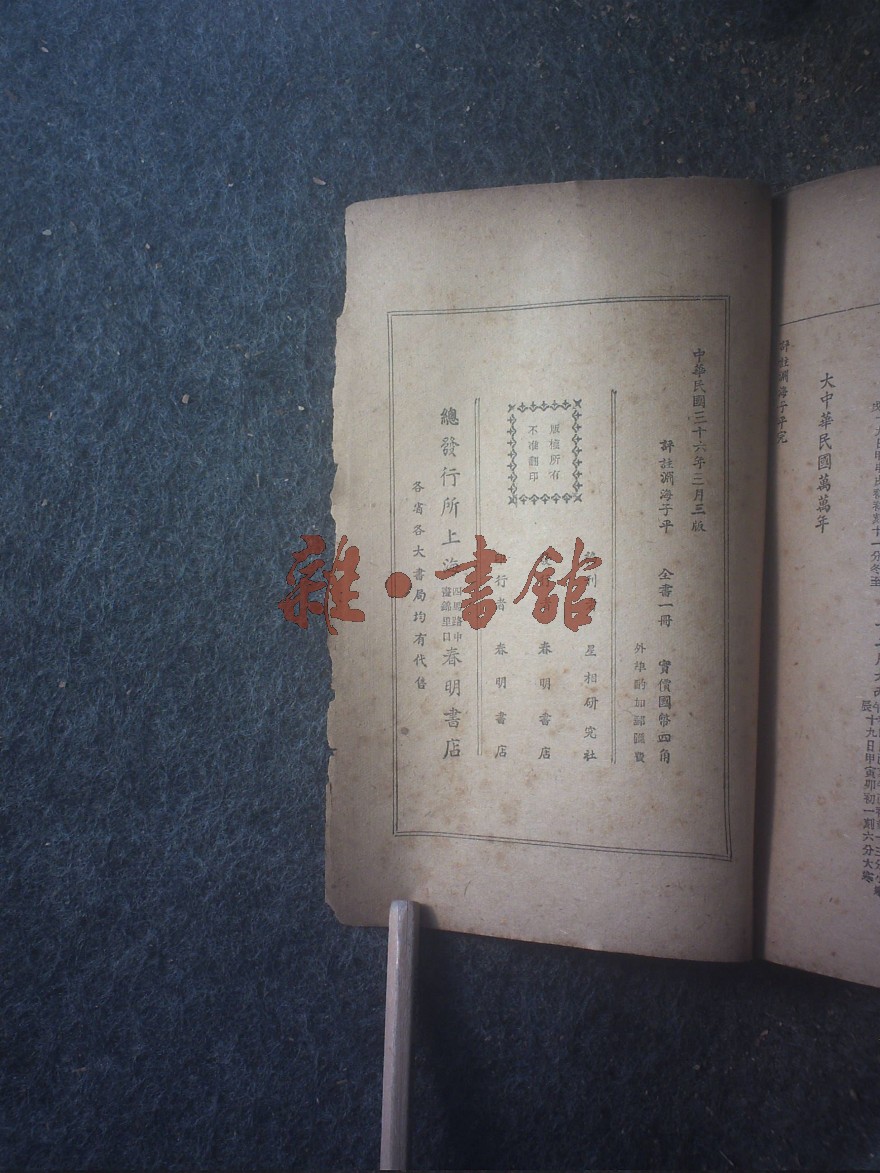 大中華民國萬萬年
評註淵海子平完
中華民國三十六年三月三版
評註淵海子平 全書一冊 實價國幣四角
外埠酌加郵匯費
星相研究社
春明書店
行者 春明書店
版權所有
不准翻印
總發行所上海四馬路中春明書店
各省各大書局均有代售
雜·書館